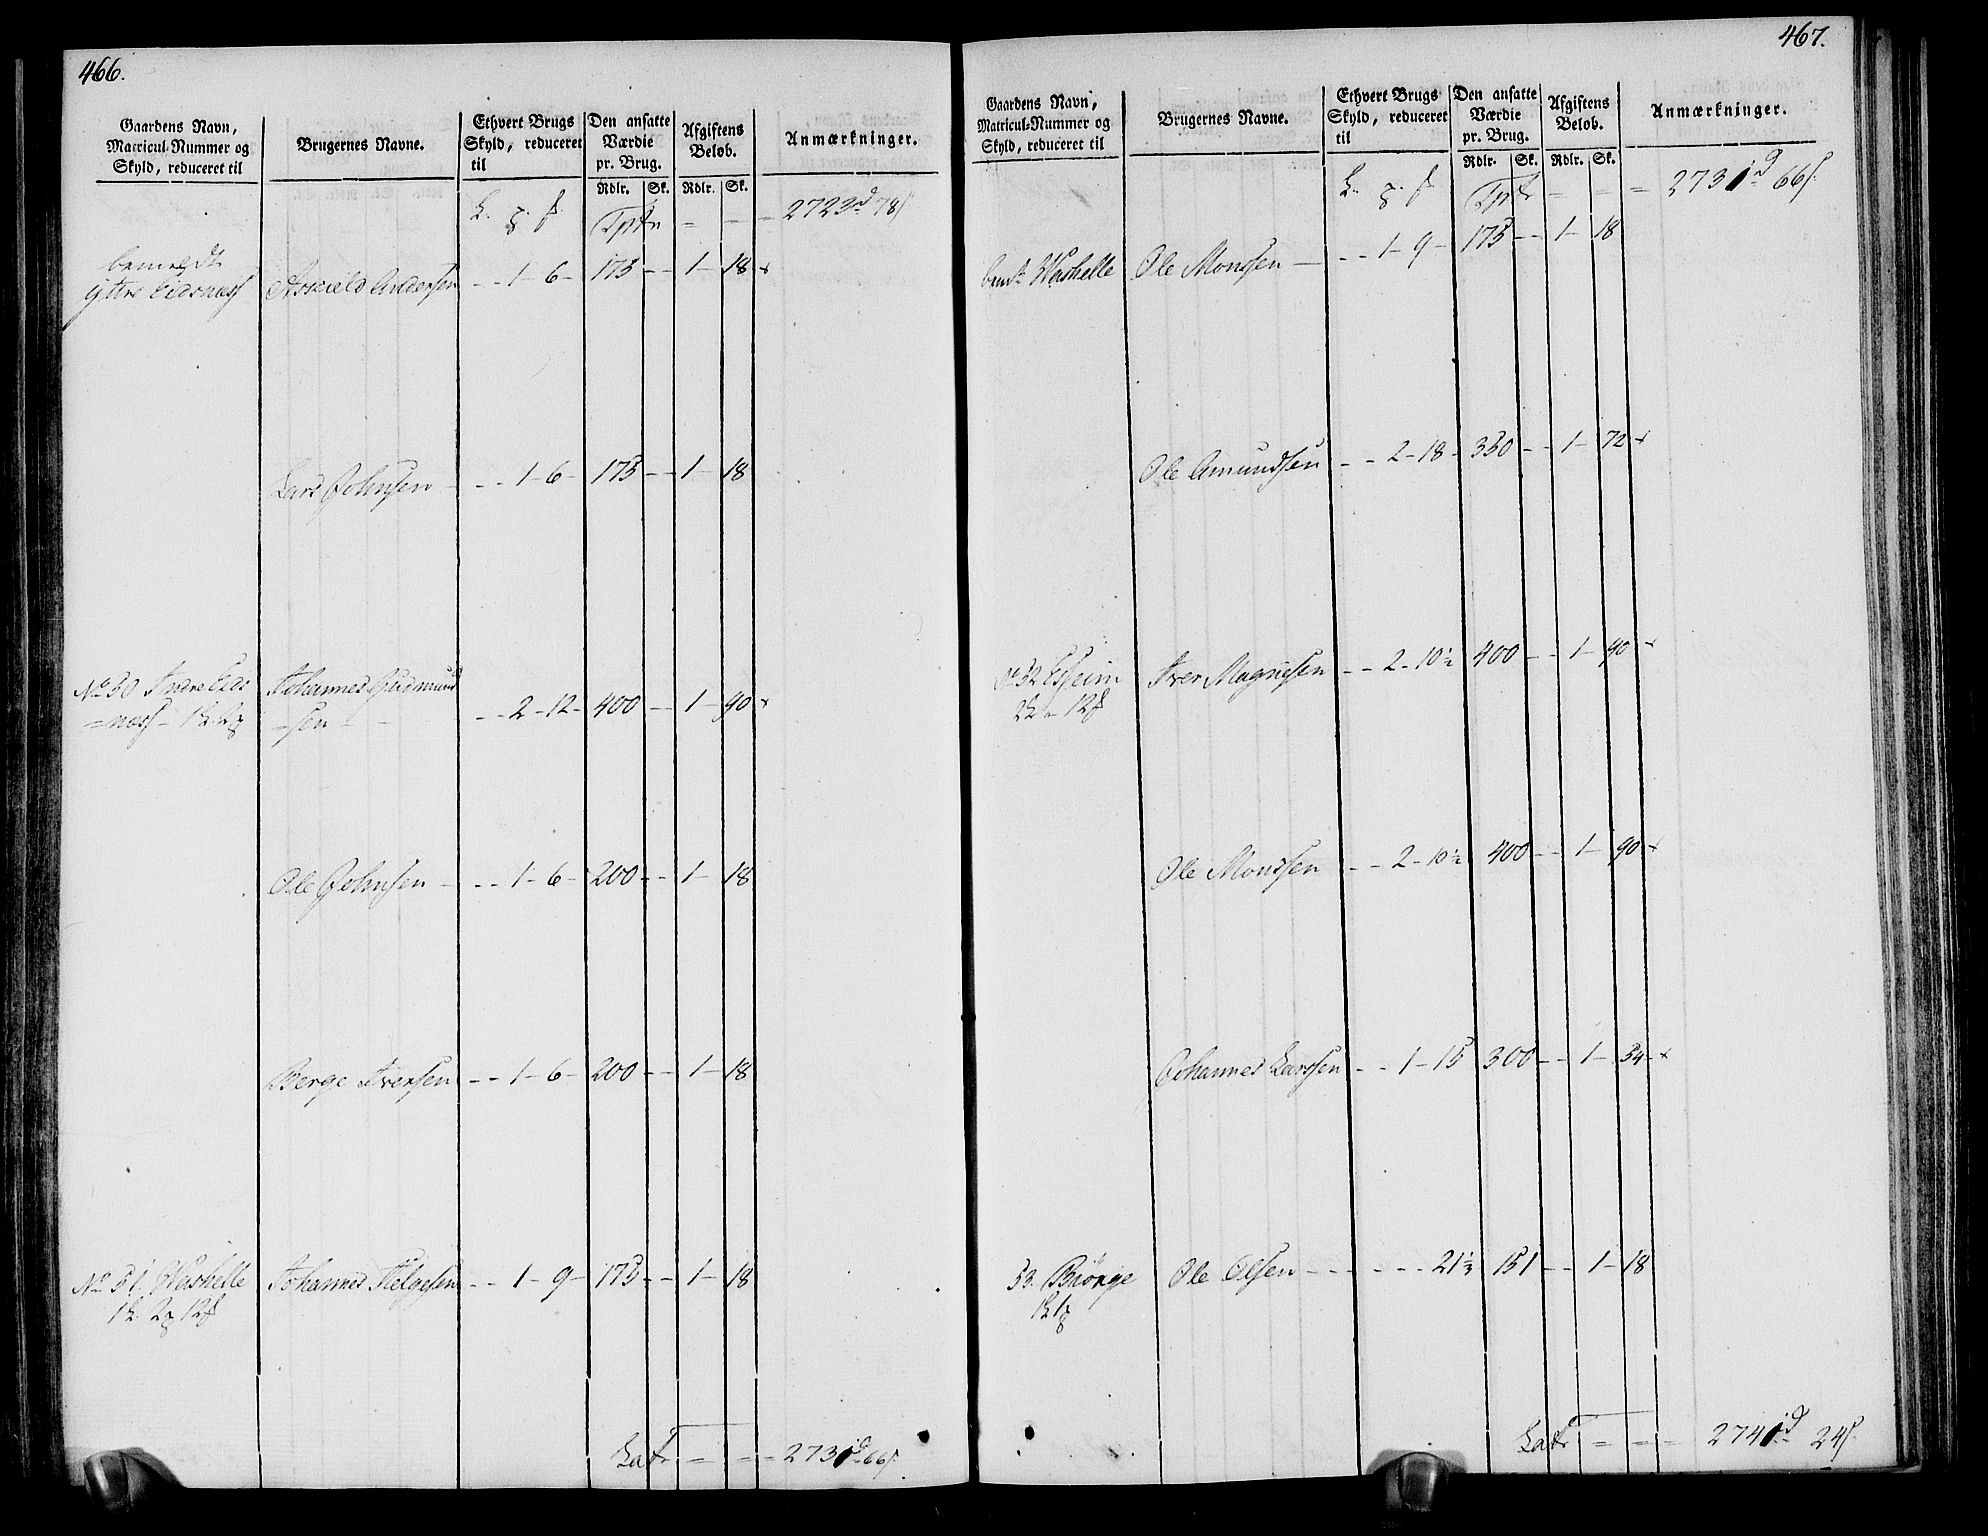 466.
Gaardens Navn, Matricul-Nummer og Skyld, reduceret til
Brugernes Navne.
Ethvert Brugs Skyld, reduceret til
Den ansatte Værdie pr. Brug.
Afgiftens Beløb.
Anmærkninger.
Rdlr. Sk. Rdlr. Sk.
Tptr = = = 2723 d 78 s
bemeldt
Askield Andersen - - 1 - 6 - 175 - - 1 - 18 x
Lars Johnsen - - - 1 - 6 - 175 - - 1 - 18
No 50 Indre Eids Johannes Gudmund
=næss - 1 L. 2 =sen - - - - 2 - 12 - 400 - - 1 - 90 x
Ole Johnsen - - - 1 - 6 - 200 - - 1 - 18
Berge Iversen - - 1 - 6 - 200 - - 1 - 18
No 51 Washelle Johannes Helgesen - - 1 - 9 - 175 - - 1 - 18
Latr = = = 2731 d 66 s
467.
Gaardens Navn, Matricul-Nummer og Skyld, reduceret til
Brugernes Navne.
Ethvert Brugs Skyld, reduceret til
Den ansatte Værdie pr. Brug.
Afgiftens Beløb.
Anmærkninger.
Rdlr. Sk. Rdlr. Sk.
Tptr = = = 2731 d 66 s
bemt Washelle Ole Monssen - - - 1 - 9 - 175 - - 1 - 18
Ole Amundsen - - 2 - 18 - 350 - - 1 - 72 x
No 52 Iver Magnesen - - 2 - 10½ 400 - - 1 - 90 x
Ole Monssen - - 2 - 10½ 400 - - 1 - 90 x
Johannes Larssen - - 1 - 15 300 - - 1 - 54 x
53. Biörge Ole Olsen - - - - - 21⅓ 151 - - 1 - 18
Latr = = = 2741 d 24 s